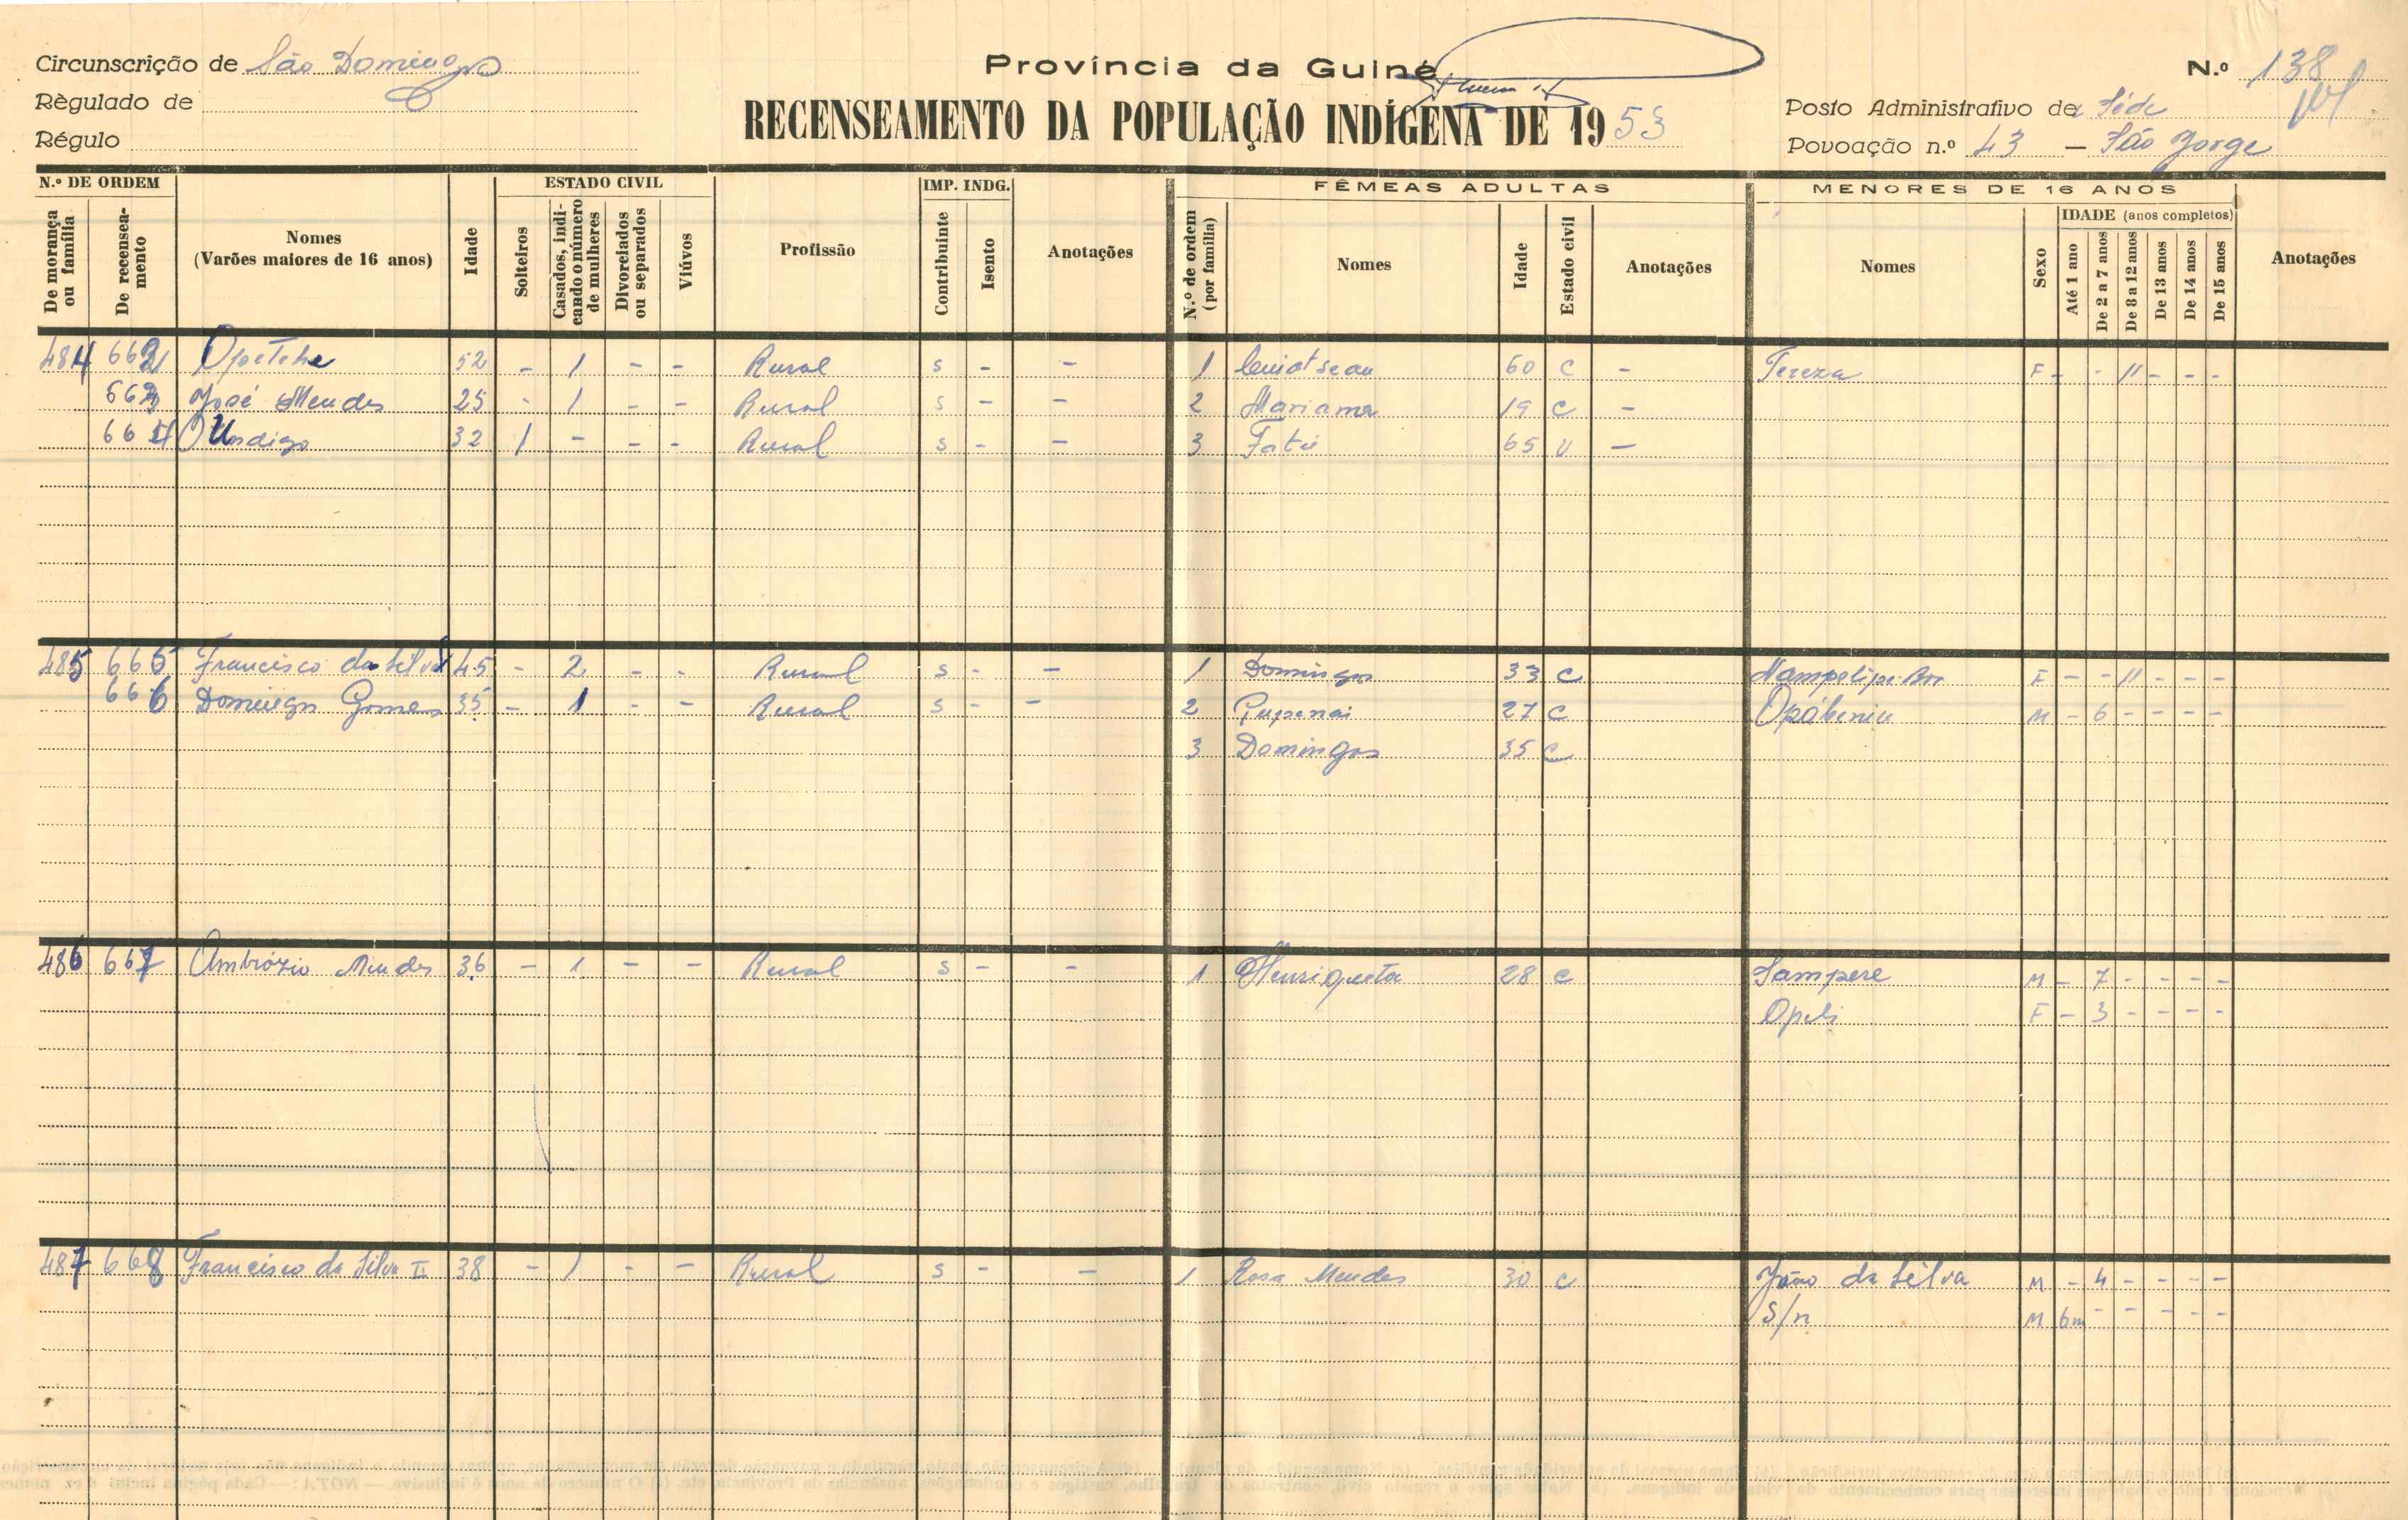 Circunscrição de São Domingos
Règulado de
Régulo
Província da Guiné
RECENSEAMENTO DA POPULAÇÃO INDÍGENA DE 1953
N.º 138
Posto Administrativo de Séde
Povoação n.º 43 — São Jorge
N.º DE ORDEM
De morança ou família
De recenseamento
Nomes
(Varões maiores de 16 anos)
Idade
ESTADO CIVIL
Solteiros
Casados, indicando o número de mulheres
Divorciados ou separados
Viúvos
Profissão
IMP. INDG.
Contribuinte
Isento
Anotações
FÊMEAS ADULTAS
N.º de ordem (por família)
Nomes
Idade
Estado civil
Anotações
MENORES DE 16 ANOS
Nomes
Sexo
IDADE (anos completos)
Até 1 ano
De 2 a 7 anos
De 8 a 12 anos
De 13 anos
De 14 anos
De 15 anos
Anotações
484 662 Opetche 52 - 1 - - Rural s - - 1 60 C - Tereza F - - 11 - - -
663 José Mendes 25 - 1 - - Rural s - - 2 Mariama 19 C -
664 32 1 - - - Rural s - - 3 Fatú 65 V -
485 665 Francisco da Silva 45 - 2 - - Rural s - - 1 Domingas 33 C F - - 11 - - -
666 Domingos Gomes 35 - 1 - - Rural s - - 2 27 C M - 6 - - - -
3 Domingas 35 C
486 667 Ambrózio Mendes 36 - 1 - - Rural s - - 1 Henriqueta 28 C Sampere M - 7 - - - -
Opeli F - 3 - - - -
487 668 Francisco da Silva II 38 - 1 - - Rural s - - 1 Rosa Mendes 30 C João da Silva M - 4 - - - -
S/n M 6m - - - - -